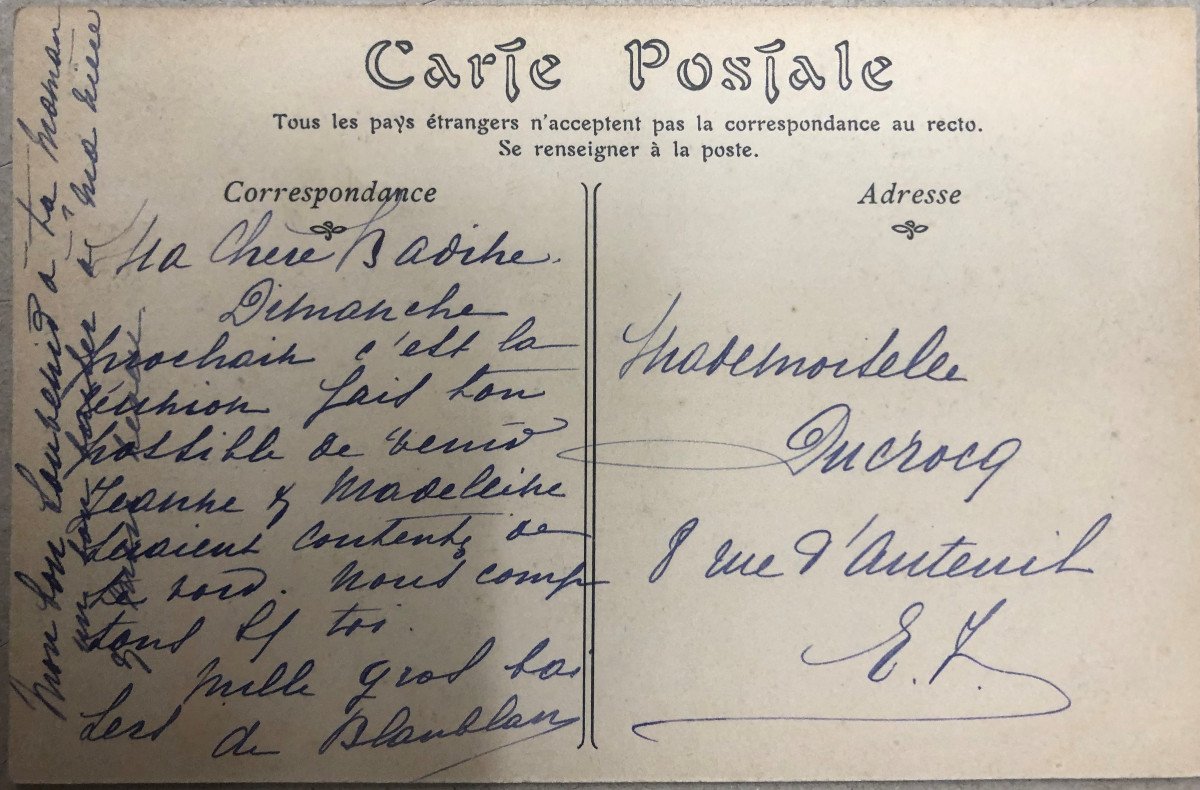 Carte Postale
Tous les pays étrangers n'acceptent pas la correspondance au recto.
Se renseigner à la poste.
Correspondance
Ma Chère
Dimanche
prochain c'est la
réunion fais ton
possible de venir
Jeanne & Madeleine
seraient contentes de
te voir. Nous comp
tons sur toi
Mille gros bai
sers de Blanblan
Mon bon souvenir à ta Maman
un bon baiser de ma mère
Adresse
Mademoiselle
Ducrocq
8 rue d'Auteuil
E. V.